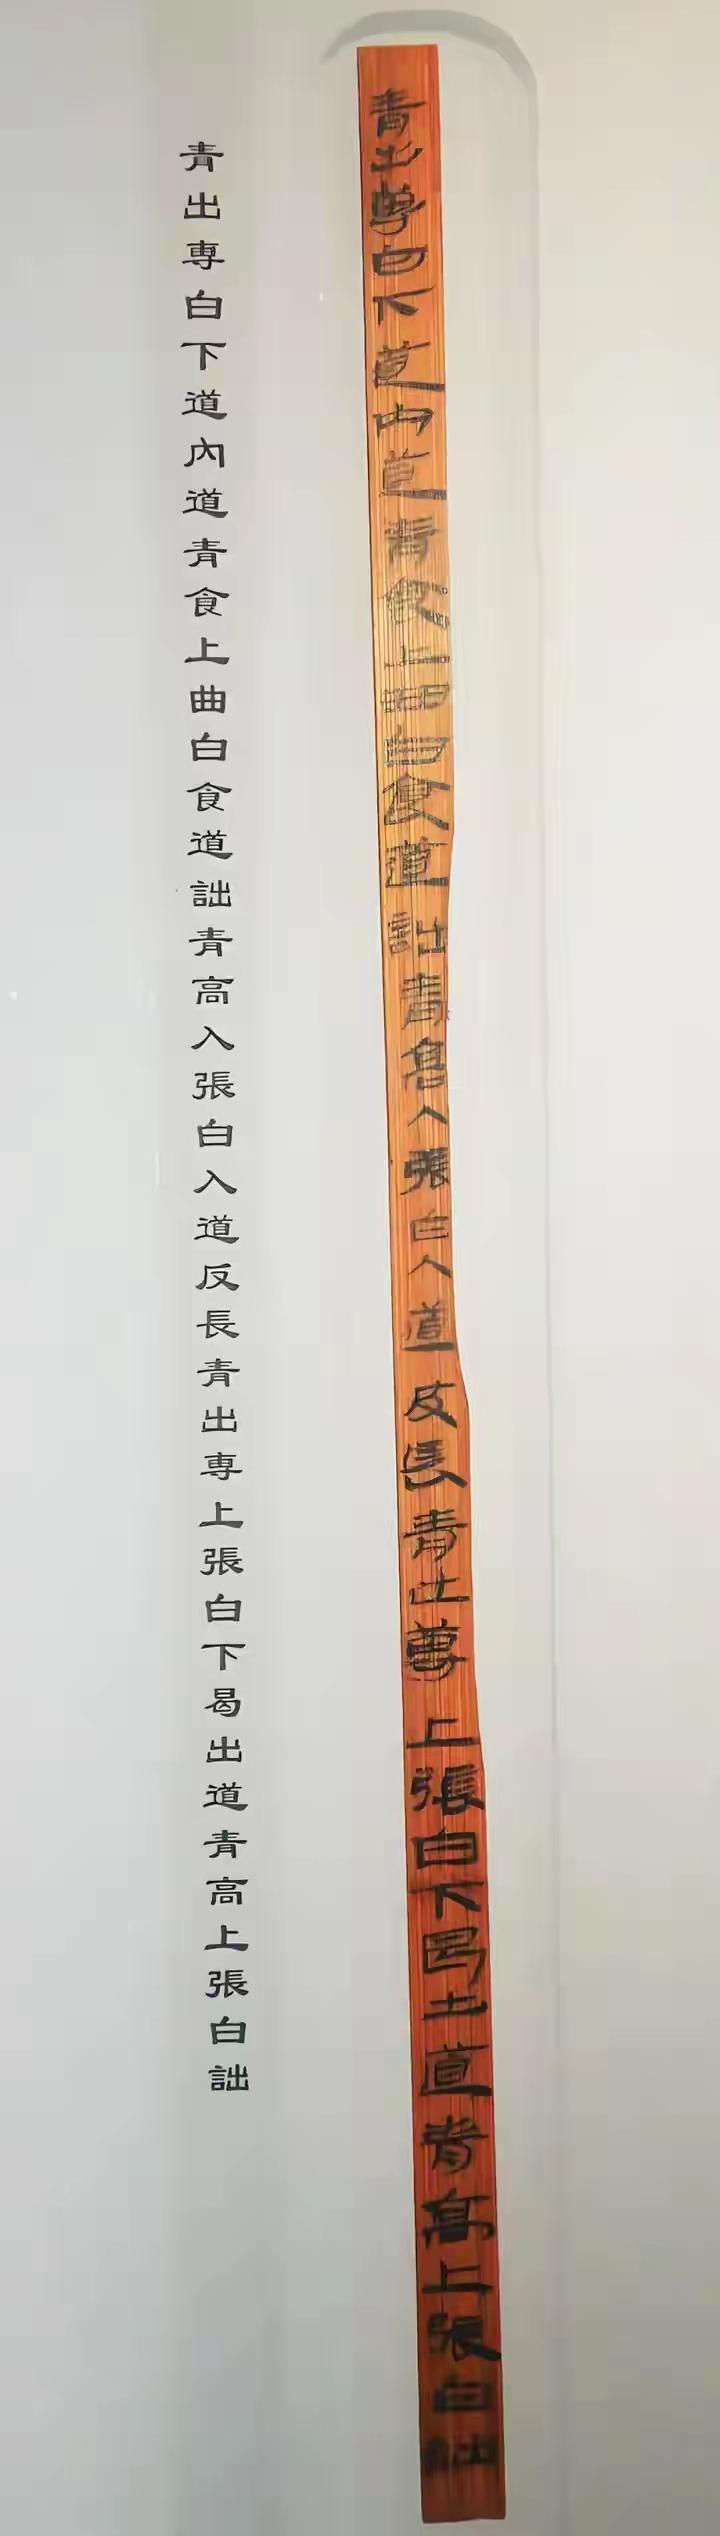 青出専白下道內道青食上曲白食道詘青高入張白入道反長青出専上張白下曷出道青高上張白詘
青出専白下道內道青食上曲白食道詘青高入張白入道反長青出専上張白下曷出道青高上張白詘